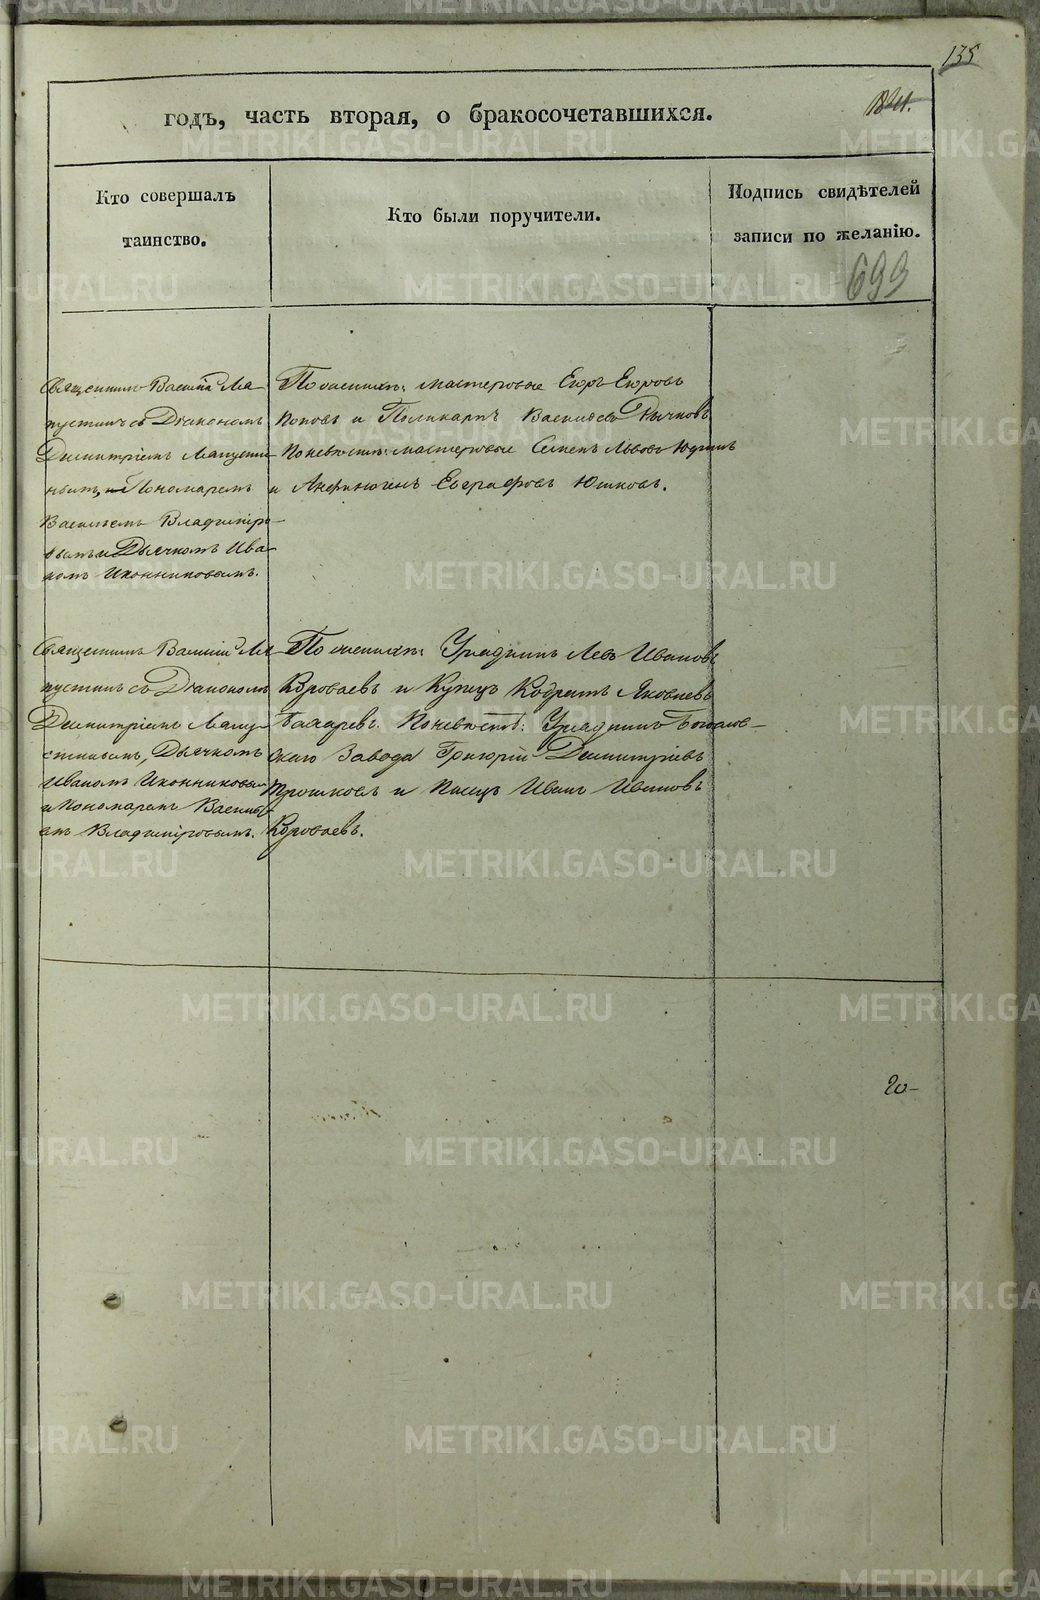 135
годъ, часть вторая, о бракосочетавшихся.
Кто совершалъ
таинство.
Кто были поручители.
Подпись свидѣтелей
записи по желанію.
699
Священникъ Василій Ла-
пустинъ съ Діакономъ
Димитріемъ Лапусти-
нымъ, и Пономаремъ
Васильемъ Владиміро-
вымъ и Дьячкомъ Ива-
номъ Иконниковымъ.
По женихѣ: мастеровые Егоръ Егоровъ
Поповъ и Поликарпъ Васильевъ Дьячковъ
По невѣстѣ: мастеровые Семенъ Львовъ Юдинъ
и Анфиногенъ Евграфовъ Юшковъ.
Священникъ Василій Ла-
пустинъ съ Діакономъ
Димитріемъ Лапу-
стинымъ, Дьячкомъ
Иваномъ Иконниковым
и Пономаремъ Василь-
емъ Владиміровымъ.
По женихѣ: Урядникъ Левъ Ивановъ
Короваевъ и Купецъ Кодратъ Яковлевъ
Бахаревъ. По невѣстѣ: Урядникъ Богослов-
скаго Завода Григорій Димитріевъ
Трошковъ и Писецъ Иванъ Ивановъ
Короваевъ.
20
METRIKI.GASO-URAL.RU